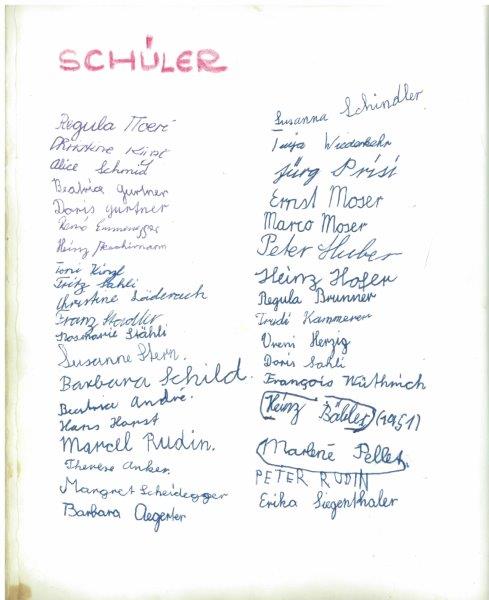 SCHÜLER
Regula
Christine
Alice Schmid
Beatrice Gurtner
Doris Gurtner
René Emmenegger
Heinz
Toni
Fritz Sahli
Christine Läderach
Franz Stadler
Rosmarie Stähli
Susanne Stern.
Barbara Schild.
Beatrice André.
Hans Horst
Marcel Rudin.
Therese Anker.
Margret Scheidegger
Barbara Aegerter
Susanna Schindler
Wiederkehr
Jürg Prisi
Ernst Moser
Marco Moser
Peter Huber
Heinz Hofer
Regula Brunner
Trudi Kammerer
Vreni Herzig
Doris Sahli
François Wüthrich
Heinz Bähler (1951)
Marlene Pellet
PETER RUDIN
Erika Siegenthaler